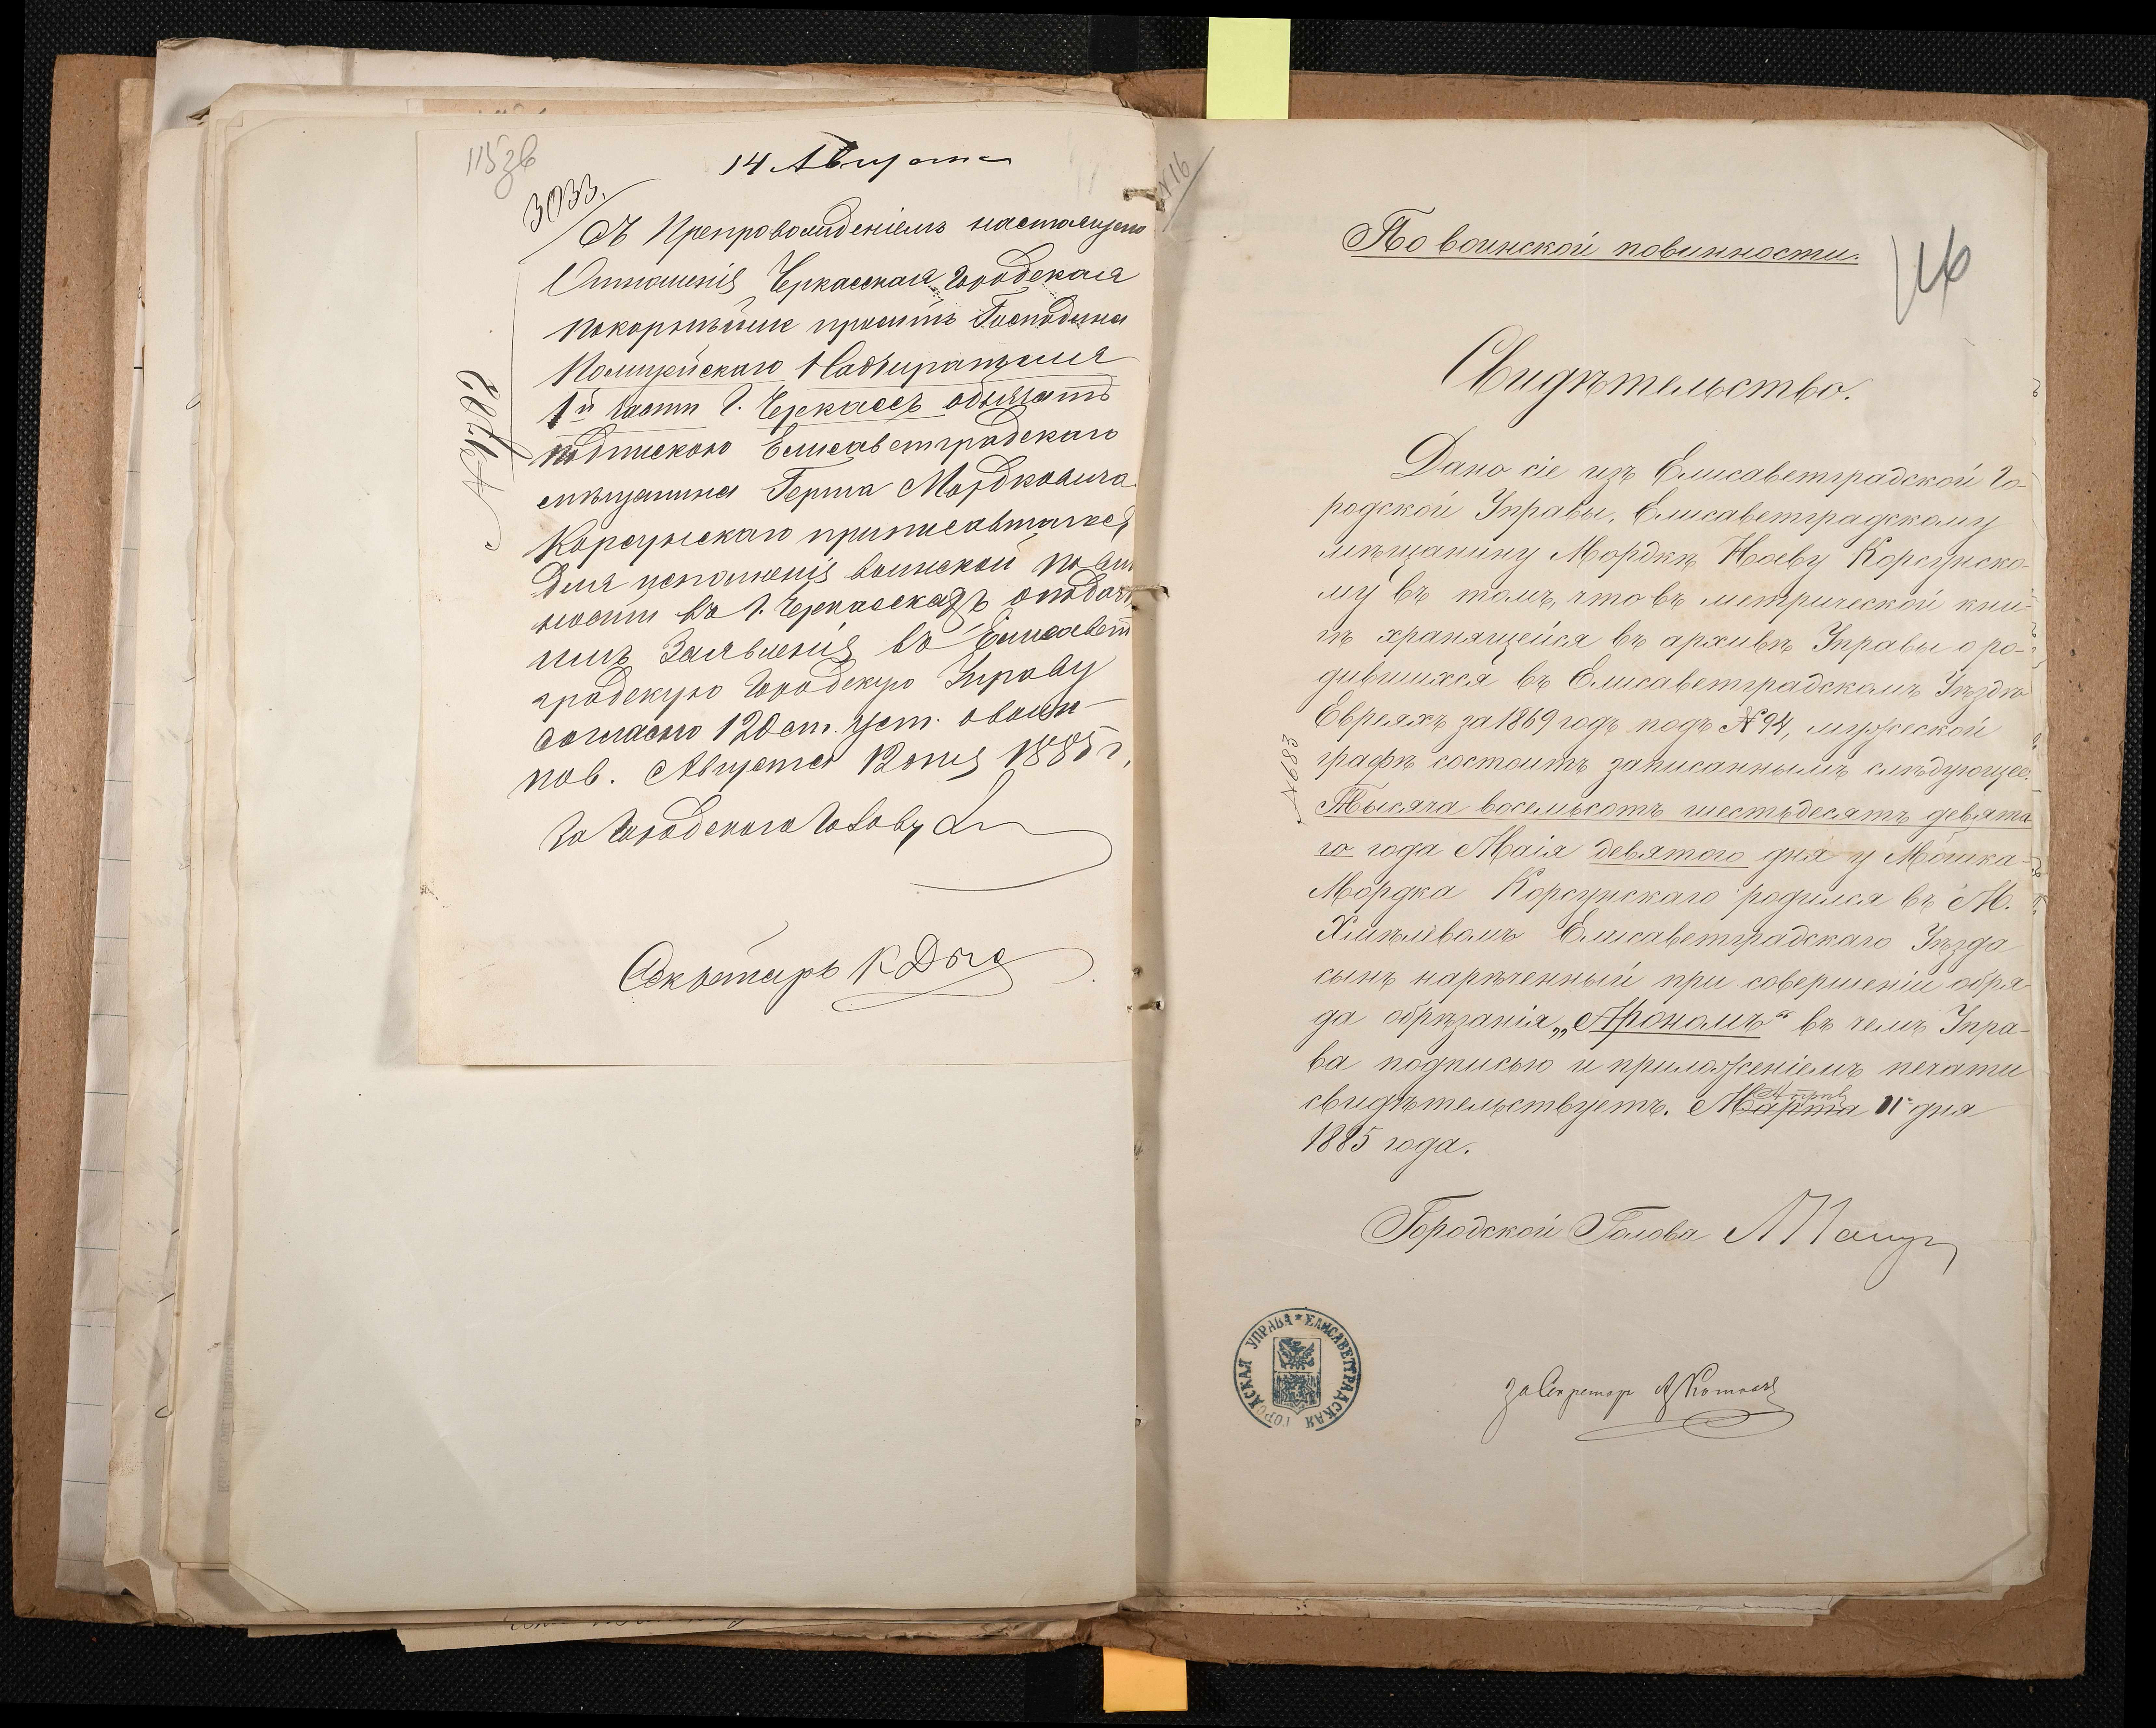 115зв
14 Августа
3033.
Съ препровожденіемъ настоящего
Отношенія Черкасская Городская
покорнѣйше проситъ Господина
Полицейскаго Надзирателя
1й части г. Черкассъ обязать
подпискою Елисаветградскаго
мѣщанина Герша Мордковича
Корсунскаго приписавшагося
для исполненія воинской повин
ности въ г. Черкассахъ о подачѣ
имъ Заявленія въ Елисавет
градскую Городскую Управу
согласно 120 ст. уст. о воин
пов. Августа 12 дня 1885 г.
За Городского Голову
Секретарь К
№ 16
116
По воинской повинности.
Свидѣтельство.
Дано сіе изъ Елисаветградской Го-
родской Управы, Елисаветградскому
мѣщанину Мордкѣ Ноеву Корсунско-
му въ томъ, что въ метрической кни-
гѣ хранящейся въ архивѣ Управы о ро-
дившихся въ Елисаветградскомъ Уѣздѣ
Евреяхъ за 1869 годъ подъ № 94, мужеской
графѣ состоитъ записаннымъ слѣдующее:
Тысяча восемьсотъ шестьдесятъ девята-
го года Маія девятого дня у Мошка-
Мордка Корсунскаго родился въ М.
Хмѣлёвомъ Елисаветградскаго Уѣзда
сынъ нарѣченный при совершеніи обря-
да обрѣзанія „Арономъ“ въ чемъ Упра-
ва подписью и приложеніемъ печати
свидѣтельствуетъ. Марта Апрѣля 11 дня
1885 года.
№ 683
Городской Голова
За Секретаря
ЕЛИСАВЕТГРАДСКАЯ ГОРОДСКАЯ УПРАВА